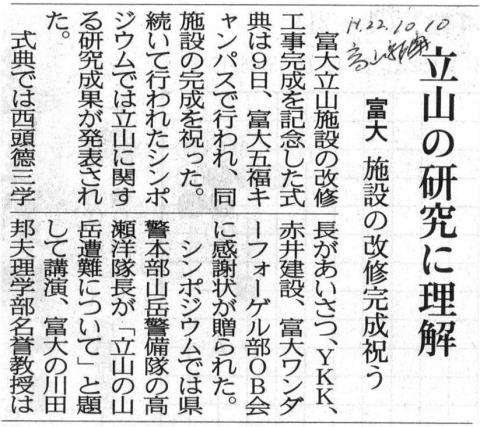 H.22.10.10
立山の研究に理解
富大 施設の改修完成祝う
富大立山施設の改修
工事完成を記念した式
典は9日、富大五福キ
ャンパスで行われ、同
施設の完成を祝った。
続いて行われたシンポ
ジウムでは立山に関す
る研究成果が発表され
た。
式典では西頭德三学
長があいさつ、YKK、
赤井建設、富大ワンダ
ーフォーゲル部OB会
に感謝状が贈られた。
シンポジウムでは県
警本部山岳警備隊の高
瀬洋隊長が「立山の山
岳遭難について」と題
して講演、富大の川田
邦夫理学部名誉教授は